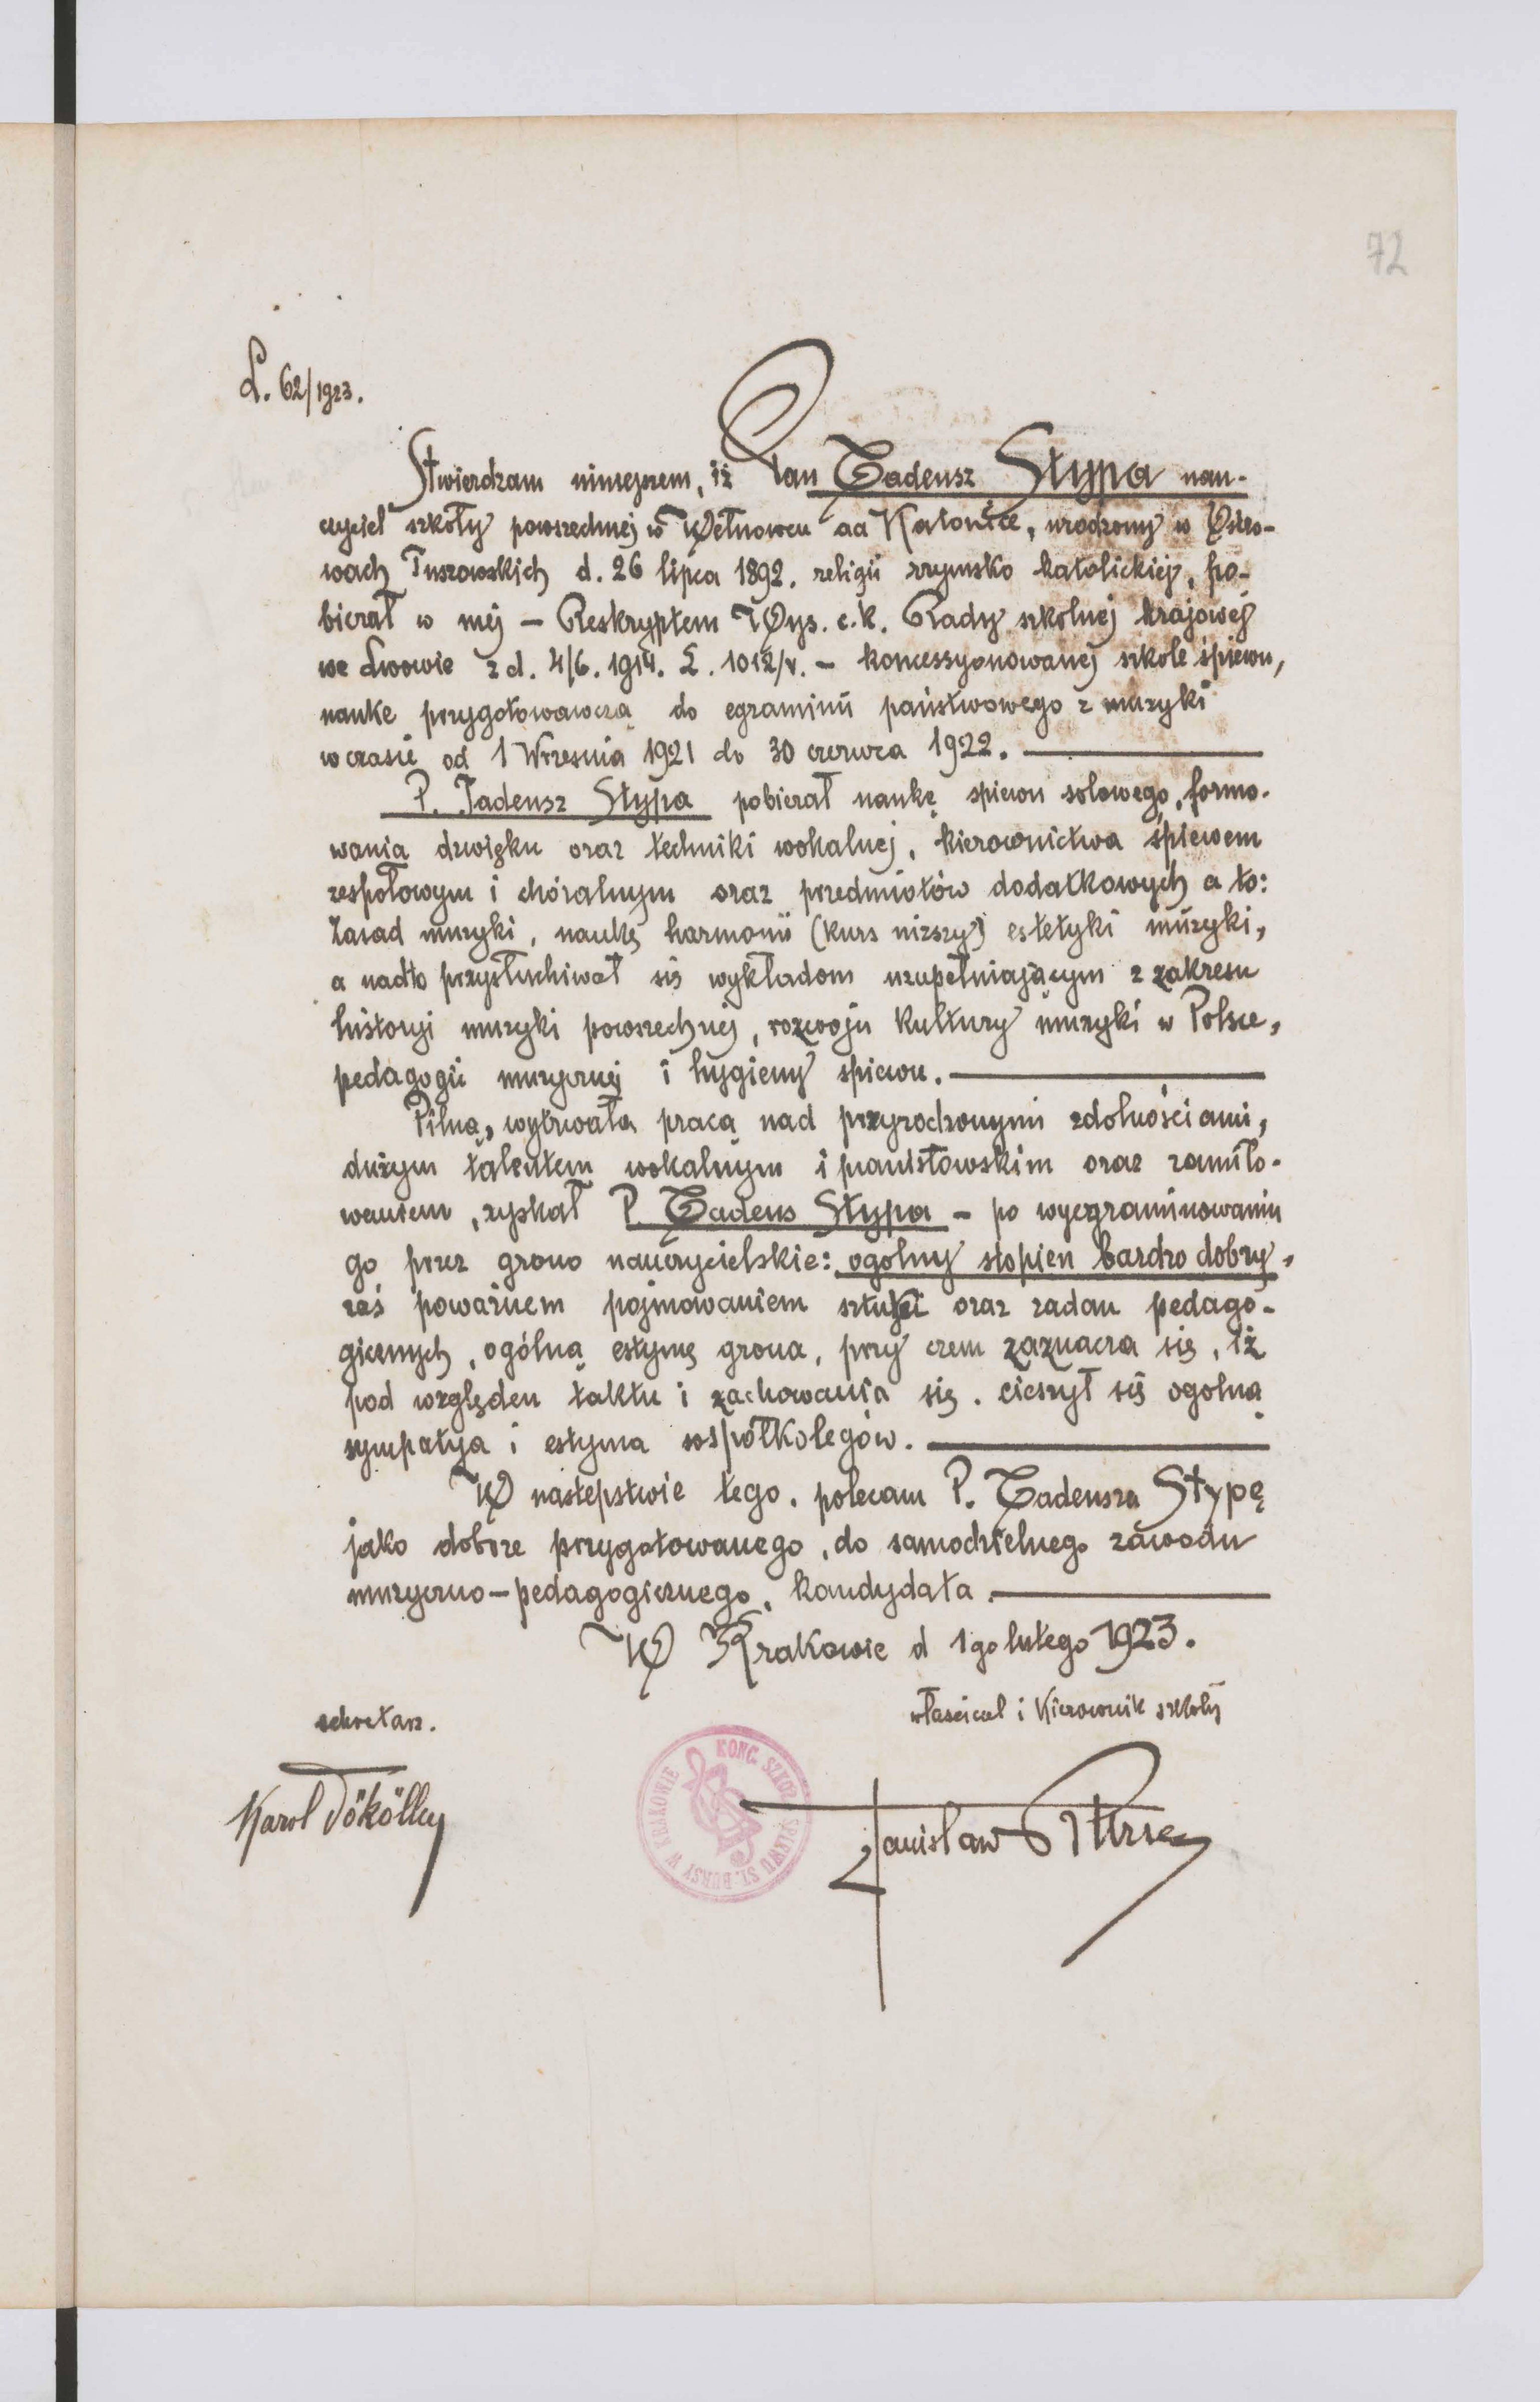 72
L. 62/1923.
Stwierdzam niniejszem, iż Pan Tadeusz Stypa nau-
czyciel szkoły powszechnej w Wełnowcu ad Katowice, urodzony w Ostro-
wach Tuszowskich d. 26 lipca 1892. religii rzymsko katolickiej, po-
bierał w mej – Reskryptem Wys. c.k. Rady szkolnej krajowej
we Lwowie z d. 4/6. 1914. L. 1012/v. – koncessyonowanej szkole śpiewu,
naukę przygotowawczą do egzaminu państwowego z muzyki
w czasie od 1 Wrzesnia 1921 do 30 czerwca 1922. —
P. Tadeusz Stypa pobierał naukę spiewu solowego, formo-
wania dzwięku oraz techniki wokalnej, kierownictwa śpiewem
zespołowym i chóralnym oraz przedmiotów dodatkowych a to:
Zasad muzyki, naukę harmonii (kurs niższy) estetyki muzyki,
a nadto przysłuchiwał się wykładom uzupełniającym z zakresu
historyi muzyki powszechnej, rozwoju kultury muzyki w Polsce,
pedagogii muzycznej i hygieny spiewu. —
Pilną, wytrwałą pracą nad przyrodzonymi zdolnościami,
dużym talentem wokalnym i pianistowskim oraz zamiło-
waniem, zyskał P. Tadeus Stypa – po wyegzaminowaniu
go przez grono nauczycielskie: ogolny stopien bardzo dobry,
zaś poważnem pojmowaniem sztuki oraz zadan pedago-
gicznych, ogólną estymę grona, przy czem zaznacza się, iż
pod względem taktu i zachowania się. cieszył się ogolną
sympatya i estyma współkolegów. —
W nastepstwie tego, polecam P. Tadeusza Stypę
jako dobrze przygotowanego, do samodzielnego zawodu
muzyczno-pedagogicznego, kandydata. —
W Krakowie d 1go lutego 1923.
sekretarz.
właściciel i Kierownik szkoły
Karol Tökölly
KONC. SZKOŁ. ŚPIEWU ST. BURSY W KRAKOWIE
Stanisław Bursa